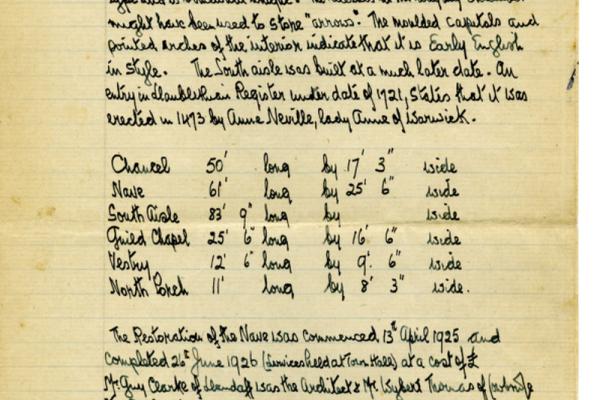 might have been used to store "arrows". The moulded capitals and
pointed arches of the interior indicate that it is Early English
in style. The South aisle was built at a much later date. An
entry in Llanblethian Register under date of 1721, states that it was
erected in 1473 by Anne Neville, lady Anne of Warwick.
Chancel 50' long by 17' 3" wide
Nave 61' long by 25' 6" wide
South Aisle 83' 9" long by wide
Guild Chapel 25' 6" long by 16' 6" wide
Vestry 12' 6" long by 9' 6" wide
North Porch 11' long by 8' 3" wide.
The Restoration of the Nave was commenced 13th April 1925 and
completed 26th June 1926 (Services held at Town Hall) at a cost of £
Mr. Guy Clarke of Llandaff was the Architect & Mr. Wyber Thomas of Cowbridge